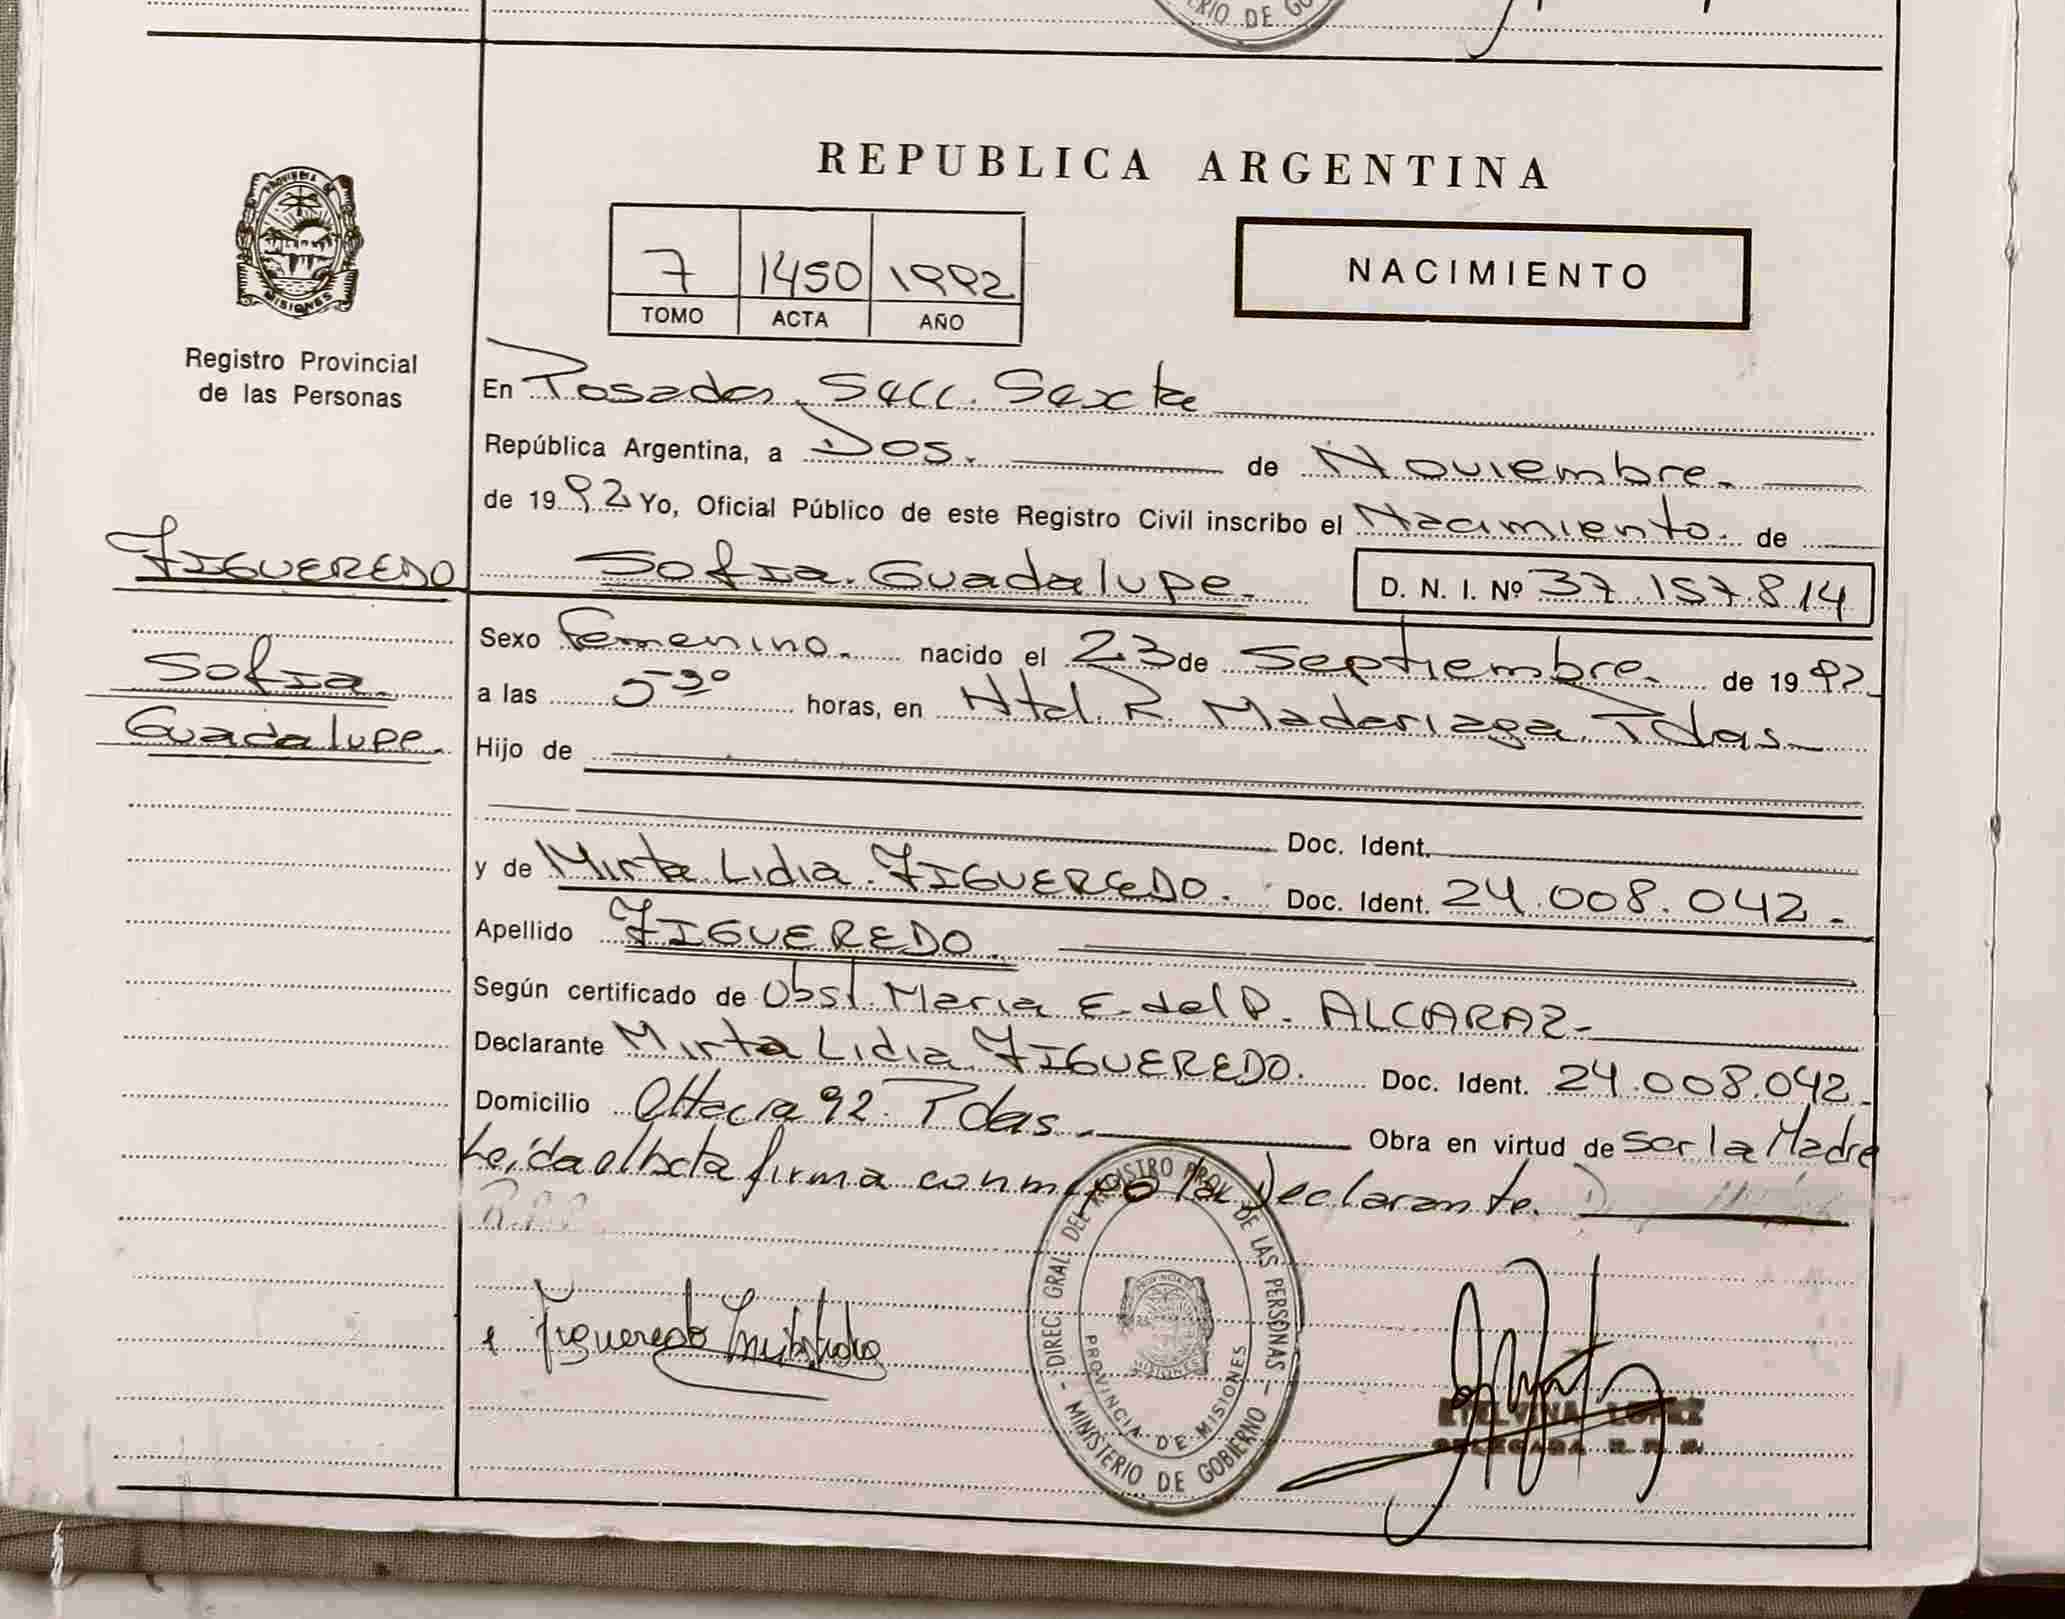 RIO DE GO
REPUBLICA ARGENTINA
PROVINCIA DE
MISIONES
Registro Provincial
de las Personas
7 1450 1992
TOMO ACTA AÑO
NACIMIENTO
En Posadas, Secc. Sexta
República Argentina, a Dos. de Noviembre.
de 1992 Yo, Oficial Público de este Registro Civil inscribo el Nacimiento. de
FIGUEREDO
Sofia
Guadalupe.
Sofia Guadalupe. D. N. I. Nº 37.157.814
Sexo Femenino. nacido el 23 de Septiembre. de 1992
a las 5 30 horas, en Htal. R. Madariaga Pdas.
Hijo de
Doc. Ident.
y de Mirta Lidia FIGUEREDO. Doc. Ident. 24.008.042.-
Apellido FIGUEREDO.
Según certificado de Obst. Maria E. del P. ALCARAZ-
Declarante Mirta Lidia FIGUEREDO. Doc. Ident. 24.008.042.
Domicilio 92 Pdas. Obra en virtud de Ser la Madre
Leida el Acta firma conmigo la Declarante.
Figueredo Mirta Lidia
DIREC. GRAL. DEL REGISTRO PROV. DE LAS PERSONAS
PROVINCIA DE MISIONES
- MINISTERIO DE GOBIERNO -
ETELVINA LOPEZ
DELEGADA R. P. P.